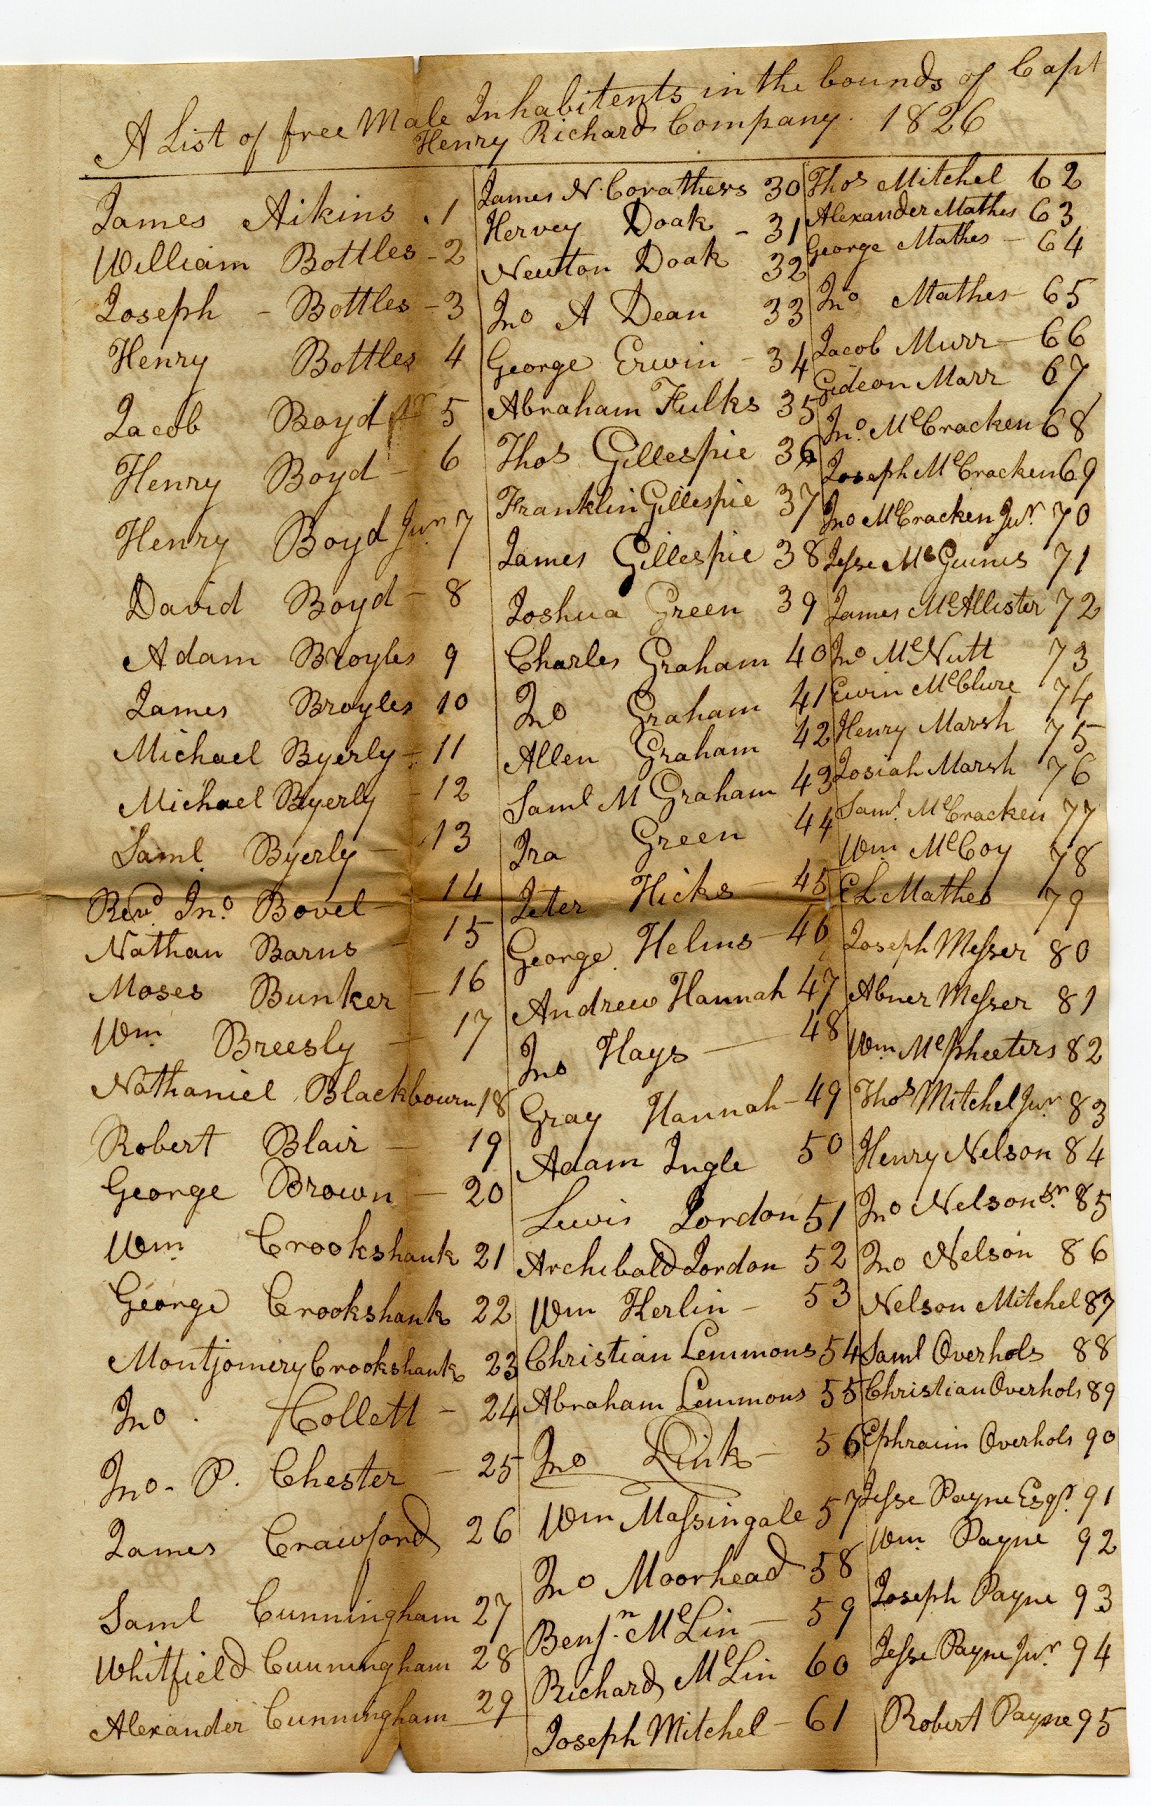 A List of free Male Inhabitents in the bounds of Capt
Henry Richards Company. 1826
James Aikins - 1
William Bottles - 2
Joseph - Bottles - 3
Henry Bottles 4
Jacob Boyd Sr 5
Henry Boyd - 6
Henry Boyd Junr 7
David Boyd - 8
Adam Broyles 9
James Broyles 10
Michael Byerly - 11
Michael Byerly - 12
Saml. Byerly - 13
Revd. Jno. Bovel - 14
Nathan Barns - 15
Moses Bunker - 16
Wm. Breesly - 17
Nathaniel Blackbourn 18
Robert Blair - 19
George Brown - 20
Wm. Crookshank 21
George Crookshank 22
Montjomery Crookshank 23
Jno. Collett - 24
Jno. P. Chester - 25
James Crawford 26
Saml Cunningham 27
Whitfield Cunningham 28
Alexander Cunningham 29
James N. Corathers 30
Hervey Doak - 31
Newton Doak 32
Jno A Dean 33
George Erwin - 34
Abraham Fulks 35
Thos Gillespie 36
Franklin Gillespie 37
James Gillespie 38
Joshua Green 39
Charles Graham 40
Jno Graham 41
Allen Graham 42
Saml M Graham 43
Ira Green 44
Jeter Hicks - 45
George Helms - 46
Andrew Hannah 47
Jno Hays - 48
Gray Hannah - 49
Adam Ingle 50
Lewis Jordon 51
Archibald Jordon 52
Wm Kerlin - 53
Christian Lemmons 54
Abraham Lemmons 55
Jno Link - 56
Wm Massingale 57
Jno Moorhead 58
Benjn. McLin - 59
Richard McLin 60
Joseph Mitchel - 61
Thos Mitchel 62
Alexander Mathes 63
George Mathes - 64
Jno Mathes - 65
Jacob Murr - 66
Gideon Marr 67
Jno. McCracken 68
Joseph McCracken 69
Jno McCracken Junr 70
Jesse McGuinis 71
James McAllister 72
Jno McNutt 73
Ewin McClure 74
Henry Marsh 75
Josiah Marsh 76
Saml. McCracken 77
Wm McCoy 78
E L Mathes 79
Joseph Messer 80
Abner Messer 81
Wm McPheeters 82
Thos Mitchel Junr 83
Henry Nelson 84
Jno Nelson Sr. 85
Jno Nelson 86
Nelson Mitchel 87
Saml Overhols 88
Christian Overhols 89
Ephraim Overhols 90
Jesse Payne Esqr. 91
Wm. Payne 92
Joseph Payne 93
Jesse Payne Junr. 94
Robert Payne 95